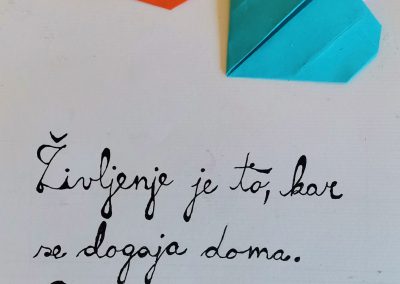 Življenje je to, kar
se dogaja doma.